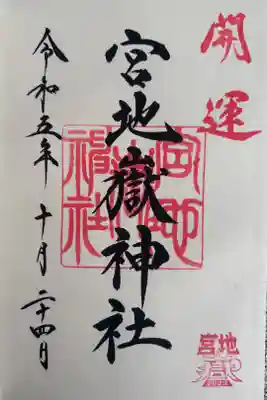 開運
宮地嶽神社
令和五年 十月 二十四日
宮地
嶽
2023